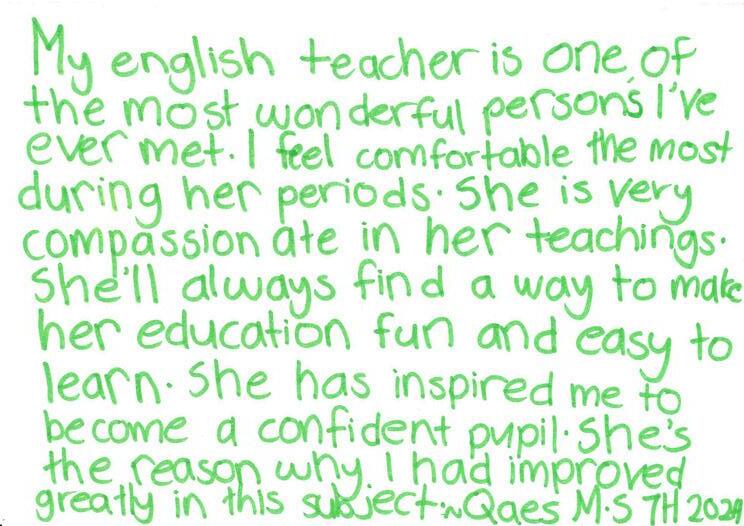 My english teacher is one of
the most wonderful person's I've
ever met. I feel comfortable the most
during her periods. She is very
compassionate in her teachings.
She'll always find a way to make
her education fun and easy to
learn. She has inspired me to
become a confident pupil. She's
the reason why I had improved
greatly in this subject. ~Qaes M.S 7H 2024